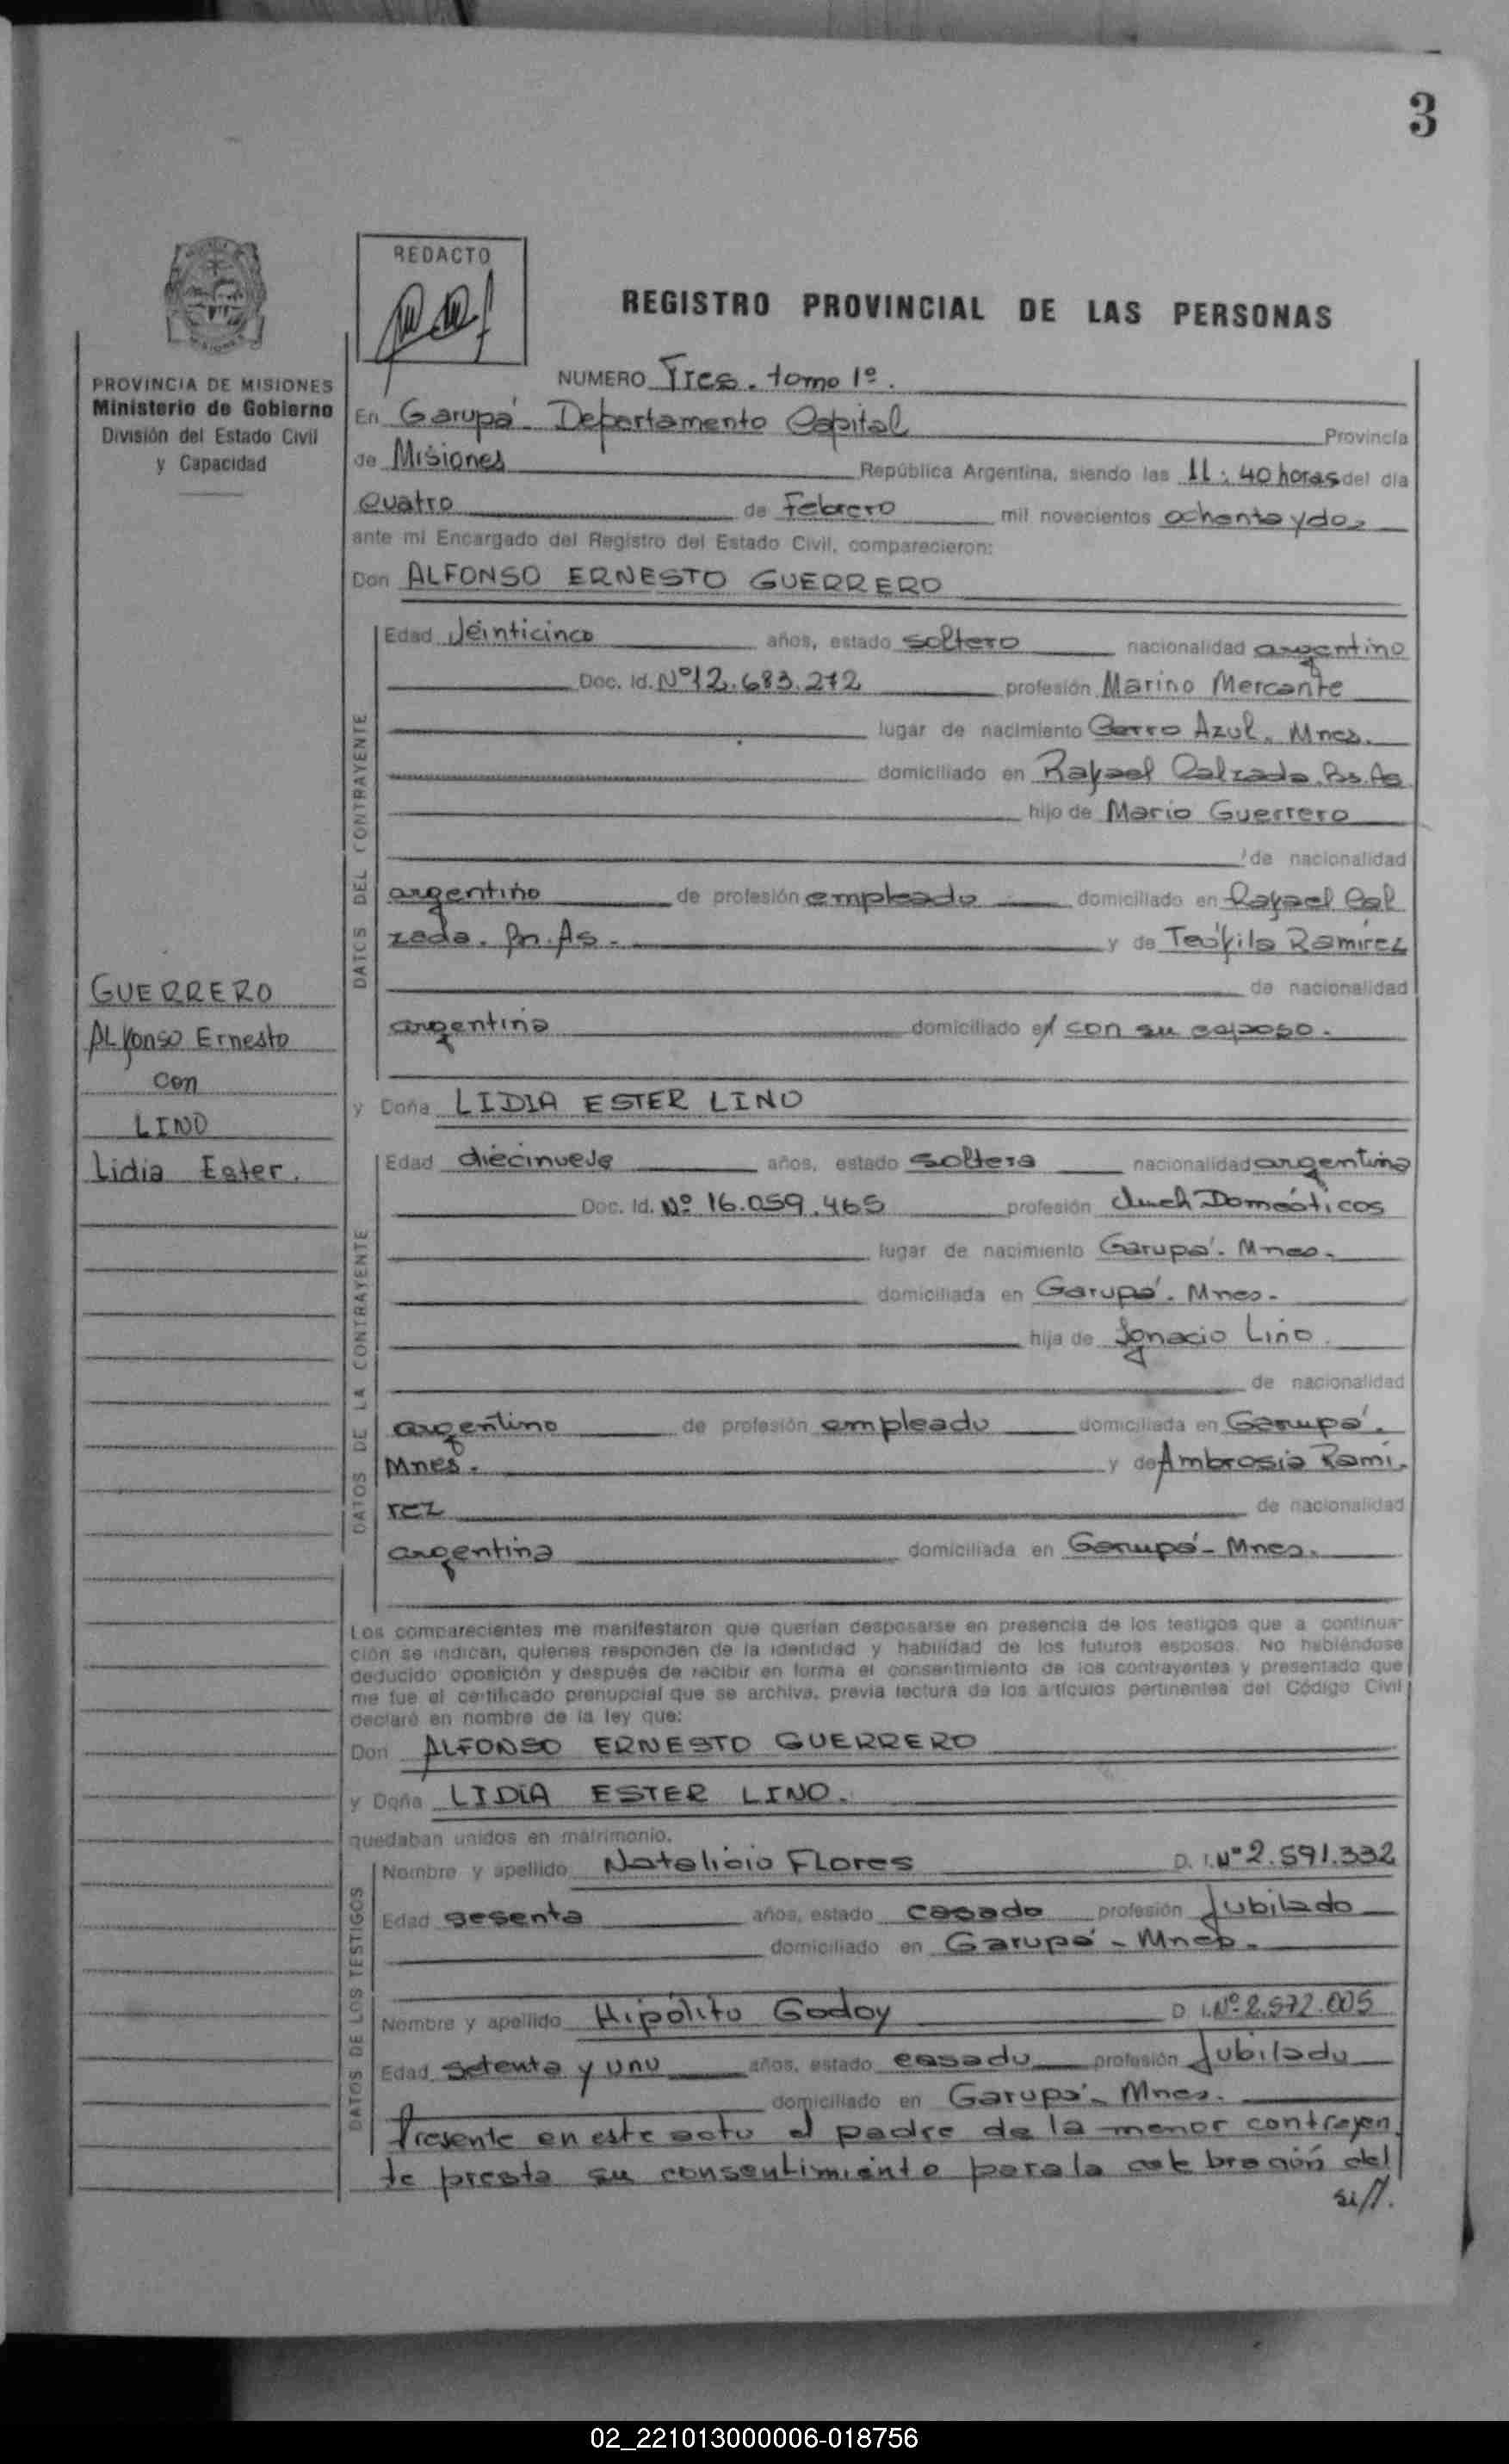 3
REDACTO
REGISTRO PROVINCIAL DE LAS PERSONAS
PROVINCIA DE MISIONES
Ministerio de Gobierno
División del Estado Civil
y Capacidad
NUMERO Tres. tomo 1º.
En Garupá. Departamento Capital Provincia
de Misiones República Argentina, siendo las 11:40 horas del día
cuatro de Febrero mil novecientos ochenta y dos
ante mi Encargado del Registro del Estado Civil, comparecieron:
Don ALFONSO ERNESTO GUERRERO
DATOS DEL CONTRAYENTE
Edad Veinticinco años, estado soltero nacionalidad argentino
Doc. Id. Nº 12.683.272 profesión Marino Mercante
lugar de nacimiento Cerro Azul. Mnes.
domiciliado en Rafael Calzada. Bs. As
hijo de Mario Guerrero
de nacionalidad
argentino de profesión empleado domiciliado en Rafael Cal
zada. Bs. As. y de Teófila Ramírez
de nacionalidad
argentina domiciliado en con su esposo.
GUERRERO
Alfonso Ernesto
con
LINO
Lidia Ester.
y Doña LIDIA ESTER LINO
DATOS DE LA CONTRAYENTE
Edad diecinueve años, estado soltera nacionalidad argentina
Doc. Id. Nº 16.059.465 profesión Domésticos
lugar de nacimiento Garupá. Mnes.
domiciliada en Garupá. Mnes.
hija de Ignacio Lino
de nacionalidad
argentino de profesión empleado domiciliada en Garupá.
Mnes. y de Ambrosia Rami.
rez de nacionalidad
argentina domiciliada en Garupá - Mnes.
Los comparecientes me manifestaron que querían desposarse en presencia de los testigos que a continua-
ción se indican, quienes responden de la identidad y habilidad de los futuros esposos. No habiéndose
deducido oposición y después de recibir en forma el consentimiento de los contrayentes y presentado que
me fue el certificado prenupcial que se archiva, previa lectura de los artículos pertinentes del Código Civil
declaré en nombre de la ley que:
Don ALFONSO ERNESTO GUERRERO
y Doña LIDIA ESTER LINO.
quedaban unidos en matrimonio.
DATOS DE LOS TESTIGOS
Nombre y apellido Natalicio Flores D. I. Nº 2.591.332
Edad sesenta años, estado casado profesión Jubilado
domiciliado en Garupá - Mnes.
Nombre y apellido Hipólito Godoy D. I. Nº 2.572.005
Edad setenta y uno años, estado casado profesión Jubilado
domiciliado en Garupá - Mnes.
Presente en este acto el padre de la menor contrayen.
te presta su consentimiento para la celebración del
02_221013000006-018756